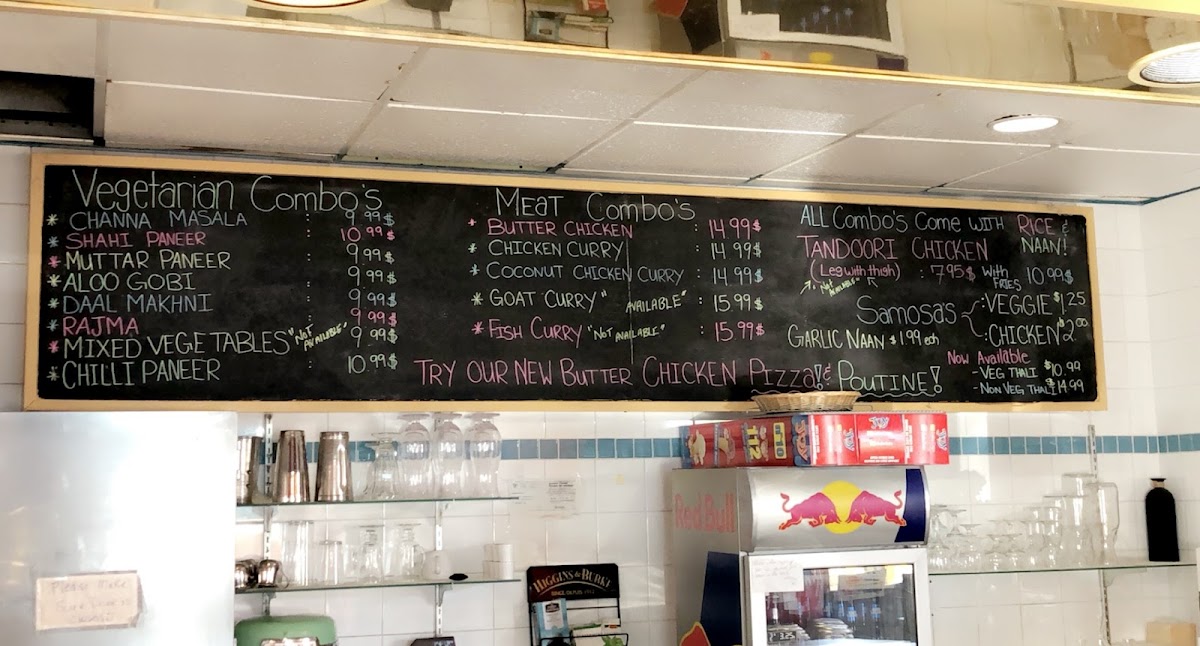 Vegetarian Combo's
* CHANNA MASALA : 9.99$
* SHAHI PANEER : 10.99$
* MUTTAR PANEER : 9.99$
* ALOO GOBI : 9.99$
* DAAL MAKHNI : 9.99$
* RAJMA : 9.99$
* MIXED VEGETABLES "NOT AVAILABLE" 9.99$
* CHILLI PANEER : 10.99$
MEAT Combo's
* BUTTER CHICKEN : 14.99$
* CHICKEN CURRY : 14.99$
* COCONUT CHICKEN CURRY : 14.99$
* GOAT CURRY " AVAILABLE" : 15.99$
* FISH CURRY "NOT AVAILABLE" : 15.99$
TRY OUR NEW BUTTER CHICKEN PIZZA! & POUTINE!
ALL Combo's Come WITH RICE & NAAN!
TANDOORI CHICKEN
(Leg with thigh) : 7.95$ With FRIES 10.99$
"NOT AVAILABLE"
Samosa's - VEGGIE $1.25
: CHICKEN $2.00
GARLIC NAAN $1.99 ech
Now Available
- VEG THALI $10.99
- NON VEG THALI $14.99
Red Bull
HIGGINS & BURKE
PLEASE MAKE